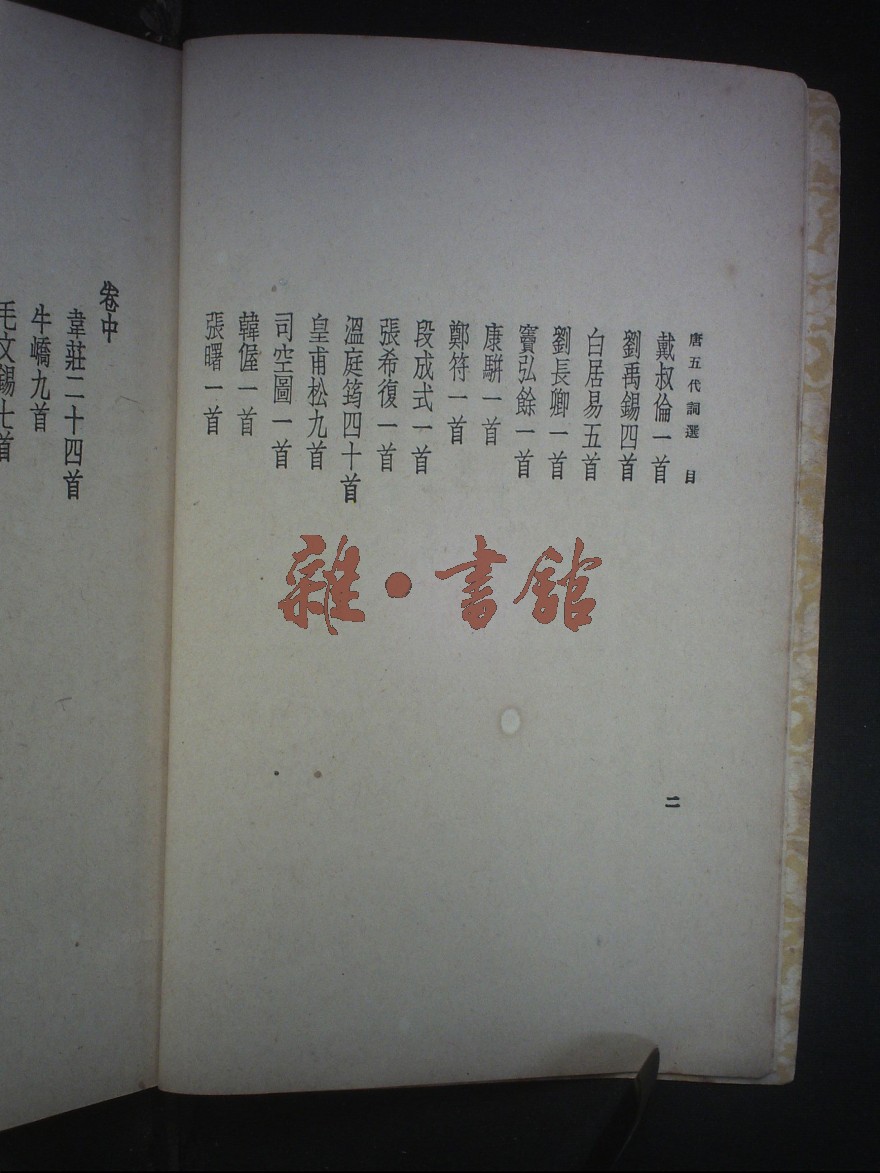 唐五代詞選 目
戴叔倫一首
劉禹錫四首
白居易五首
劉長卿一首
竇弘餘一首
康駢一首
鄭符一首
段成式一首
張希復一首
溫庭筠四十首
皇甫松九首
司空圖一首
韓偓一首
張曙一首
二
卷中
韋莊二十四首
牛嶠九首
毛文錫七首
雜·書館